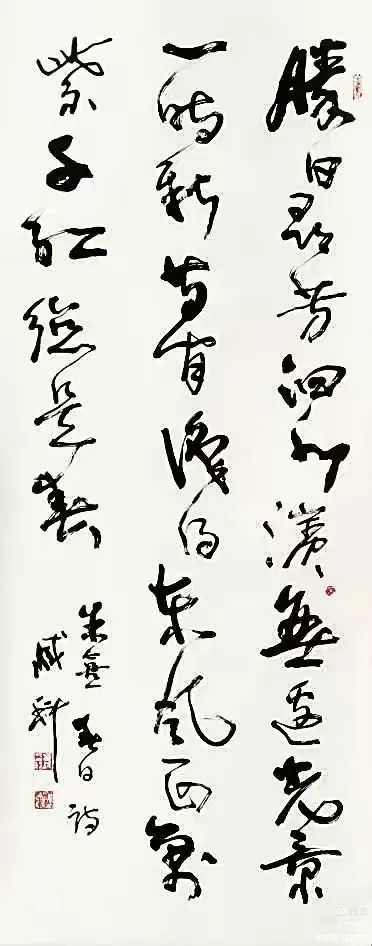 勝日尋芳泗水濱無邊光景
一時新等閒識得東風面萬
紫千紅總是春
朱熹春日詩